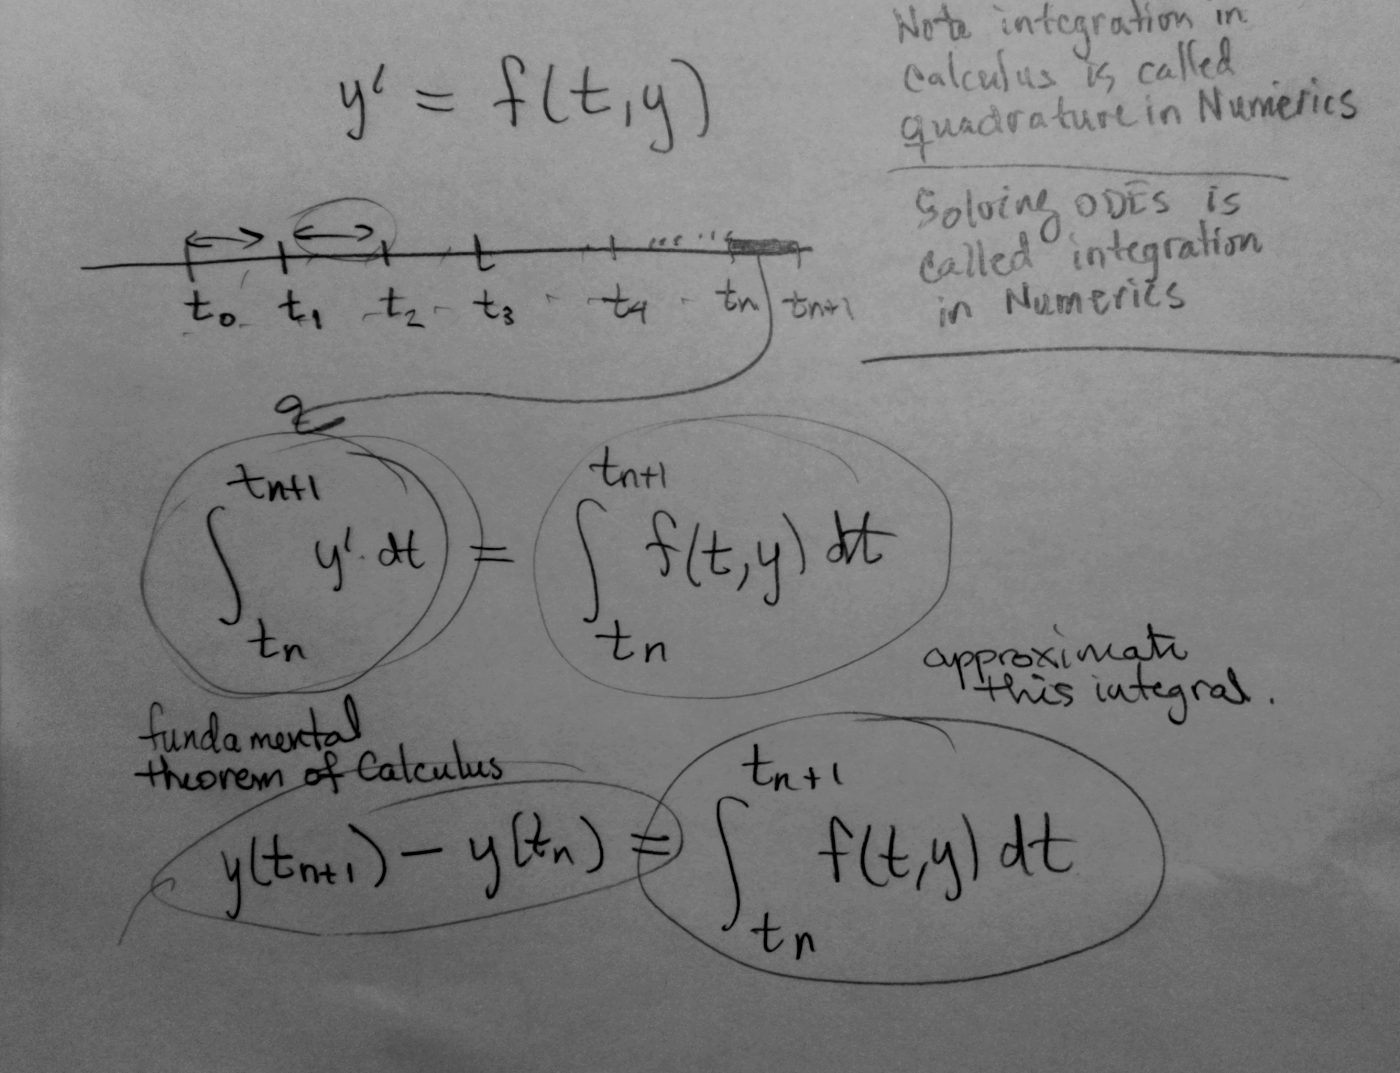 y' = f(t,y)
Note integration in
Calculus is called
quadrature in Numerics
Solving ODEs is
called integration
in Numerics
t₀ t₁ t₂ t₃ t₄ tₙ tₙ₊₁
∫ₜₙ^tₙ₊₁ y' dt = ∫ₜₙ^tₙ₊₁ f(t,y) dt
approximate
this integral.
fundamental
theorem of Calculus
y(tₙ₊₁) − y(tₙ) = ∫ₜₙ^tₙ₊₁ f(t,y) dt